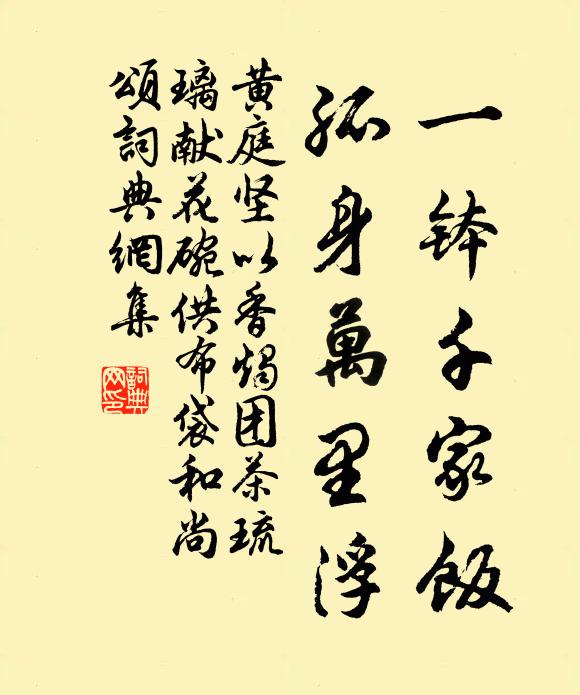 一钵千家飯
孤身萬里浮
黄庭坚以香燭团茶琉
璃献花碗供布袋和尚
頌詞典網集
詞典
网印